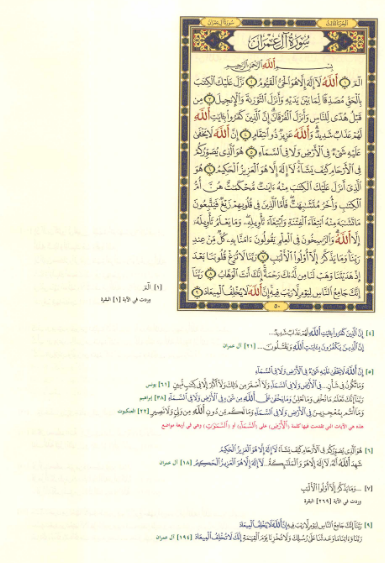 سُورَةُ آلِ عِمْرَانَ
بِسْمِ ٱللَّهِ ٱلرَّحْمَٰنِ ٱلرَّحِيمِ
الٓمٓ ١ ٱللَّهُ لَآ إِلَٰهَ إِلَّا هُوَ ٱلْحَىُّ ٱلْقَيُّومُ ٢ نَزَّلَ عَلَيْكَ ٱلْكِتَٰبَ
بِٱلْحَقِّ مُصَدِّقًا لِّمَا بَيْنَ يَدَيْهِ وَأَنزَلَ ٱلتَّوْرَىٰةَ وَٱلْإِنجِيلَ ٣ مِن
قَبْلُ هُدًى لِّلنَّاسِ وَأَنزَلَ ٱلْفُرْقَانَ إِنَّ ٱلَّذِينَ كَفَرُوا۟ بِـَٔايَٰتِ ٱللَّهِ
لَهُمْ عَذَابٌ شَدِيدٌ وَٱللَّهُ عَزِيزٌ ذُو ٱنتِقَامٍ ٤ إِنَّ ٱللَّهَ لَا يَخْفَىٰ
عَلَيْهِ شَىْءٌ فِى ٱلْأَرْضِ وَلَا فِى ٱلسَّمَآءِ ٥ هُوَ ٱلَّذِى يُصَوِّرُكُمْ
فِى ٱلْأَرْحَامِ كَيْفَ يَشَآءُ لَآ إِلَٰهَ إِلَّا هُوَ ٱلْعَزِيزُ ٱلْحَكِيمُ ٦ هُوَ
ٱلَّذِىٓ أَنزَلَ عَلَيْكَ ٱلْكِتَٰبَ مِنْهُ ءَايَٰتٌ مُّحْكَمَٰتٌ هُنَّ أُمُّ
ٱلْكِتَٰبِ وَأُخَرُ مُتَشَٰبِهَٰتٌ فَأَمَّا ٱلَّذِينَ فِى قُلُوبِهِمْ زَيْغٌ فَيَتَّبِعُونَ
مَا تَشَٰبَهَ مِنْهُ ٱبْتِغَآءَ ٱلْفِتْنَةِ وَٱبْتِغَآءَ تَأْوِيلِهِۦ وَمَا يَعْلَمُ تَأْوِيلَهُۥٓ
إِلَّا ٱللَّهُ وَٱلرَّٰسِخُونَ فِى ٱلْعِلْمِ يَقُولُونَ ءَامَنَّا بِهِۦ كُلٌّ مِّنْ عِندِ
رَبِّنَا وَمَا يَذَّكَّرُ إِلَّآ أُو۟لُوا۟ ٱلْأَلْبَٰبِ ٧ رَبَّنَا لَا تُزِغْ قُلُوبَنَا بَعْدَ
إِذْ هَدَيْتَنَا وَهَبْ لَنَا مِن لَّدُنكَ رَحْمَةً إِنَّكَ أَنتَ ٱلْوَهَّابُ ٨ رَبَّنَآ
إِنَّكَ جَامِعُ ٱلنَّاسِ لِيَوْمٍ لَّا رَيْبَ فِيهِ إِنَّ ٱللَّهَ لَا يُخْلِفُ ٱلْمِيعَادَ ٩
٥٠
[١] الٓمٓ
وردت في الآية [١] البقرة
[٤] إِنَّ ٱلَّذِينَ كَفَرُوا۟ بِـَٔايَٰتِ ٱللَّهِ لَهُمْ عَذَابٌ شَدِيدٌ...
إِنَّ ٱلَّذِينَ يَكْفُرُونَ بِـَٔايَٰتِ ٱللَّهِ وَيَقْتُلُونَ... [٢١] آل عمران
[٥] إِنَّ ٱللَّهَ لَا يَخْفَىٰ عَلَيْهِ شَىْءٌ فِى ٱلْأَرْضِ وَلَا فِى ٱلسَّمَآءِ
وَمَا تَكُونُ فِى شَأْنٍ... فِى ٱلْأَرْضِ وَلَا فِى ٱلسَّمَآءِ وَلَآ أَصْغَرَ مِن ذَٰلِكَ وَلَآ أَكْبَرَ إِلَّا فِى كِتَٰبٍ مُّبِينٍ [٦١] يونس
رَبَّنَآ إِنَّكَ تَعْلَمُ مَا نُخْفِى وَمَا نُعْلِنُ وَمَا يَخْفَىٰ عَلَى ٱللَّهِ مِن شَىْءٍ فِى ٱلْأَرْضِ وَلَا فِى ٱلسَّمَآءِ [٣٨] إبراهيم
وَمَآ أَنتُم بِمُعْجِزِينَ فِى ٱلْأَرْضِ وَلَا فِى ٱلسَّمَآءِ وَمَا لَكُم مِّن دُونِ ٱللَّهِ مِن وَلِىٍّ وَلَا نَصِيرٍ [٢٢] العنكبوت
هذه هي الآيات التي تقدمت فيها كلمة «ٱلْأَرْضِ» على «ٱلسَّمَآءِ» أو «ٱلسَّمَٰوَٰتِ» وهي في أربعة مواضع
[٦] هُوَ ٱلَّذِى يُصَوِّرُكُمْ فِى ٱلْأَرْحَامِ كَيْفَ يَشَآءُ لَآ إِلَٰهَ إِلَّا هُوَ ٱلْعَزِيزُ ٱلْحَكِيمُ
شَهِدَ ٱللَّهُ أَنَّهُۥ لَآ إِلَٰهَ إِلَّا هُوَ وَٱلْمَلَٰٓئِكَةُ... لَآ إِلَٰهَ إِلَّا هُوَ ٱلْعَزِيزُ ٱلْحَكِيمُ [١٨] آل عمران
[٧] ...وَمَا يَذَّكَّرُ إِلَّآ أُو۟لُوا۟ ٱلْأَلْبَٰبِ
وردت في الآية [٢٦٩] البقرة
[٩] رَبَّنَآ إِنَّكَ جَامِعُ ٱلنَّاسِ لِيَوْمٍ لَّا رَيْبَ فِيهِ إِنَّ ٱللَّهَ لَا يُخْلِفُ ٱلْمِيعَادَ
رَبَّنَا وَءَاتِنَا مَا وَعَدتَّنَا عَلَىٰ رُسُلِكَ وَلَا تُخْزِنَا يَوْمَ ٱلْقِيَٰمَةِ إِنَّكَ لَا تُخْلِفُ ٱلْمِيعَادَ [١٩٤] آل عمران